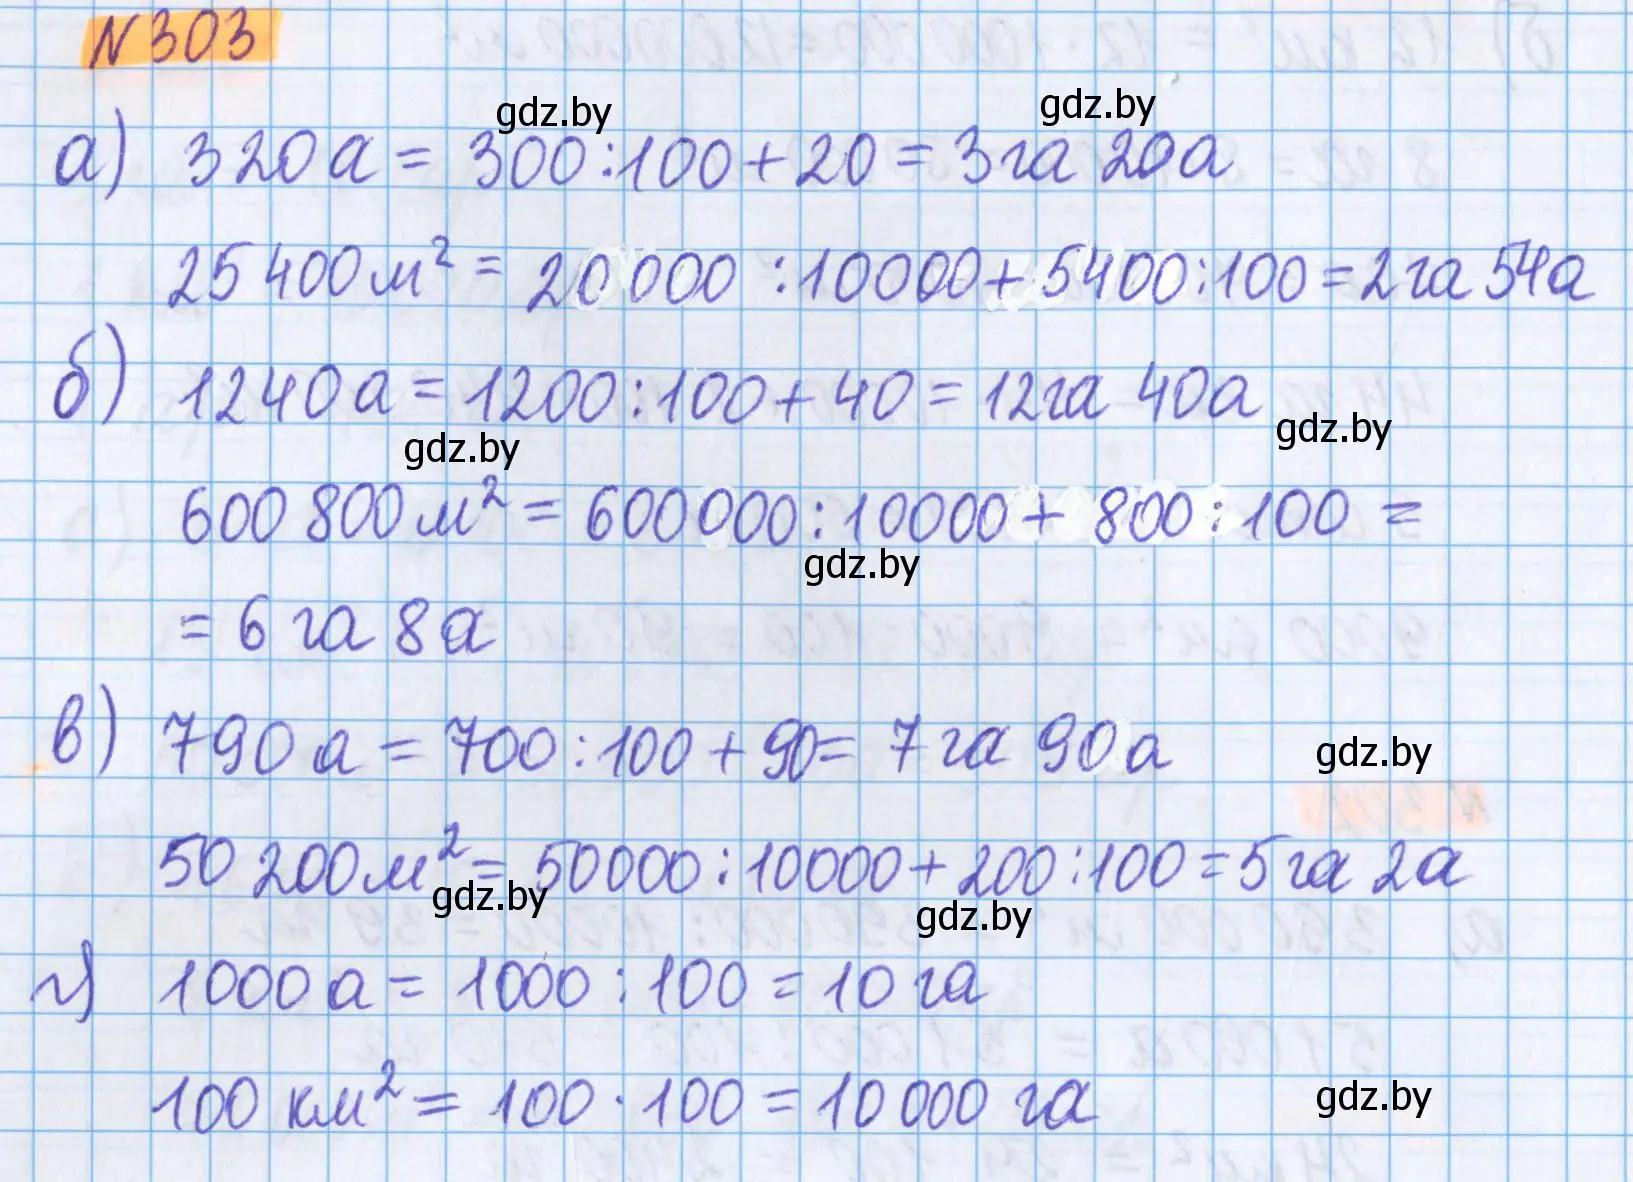 N 303
gdz.by gdz.by
а) 320 а = 300:100+20 = 3 га 20 а
25 400 м² = 20 000 :10000+5400:100=2 га 54а
б) 1240 а = 1200:100+40 = 12 га 40 а
gdz.by gdz.by
600 800 м² = 600000:10000+ 800:100 =
gdz.by
= 6 га 8 а
в) 790 а = 700:100+90= 7 га 90 а
gdz.by
50 200 м² = 50000:10000+200:100=5 га 2а
gdz.by gdz.by
г) 1000 а = 1000:100 = 10 га
100 км² = 100·100 = 10 000 га
gdz.by